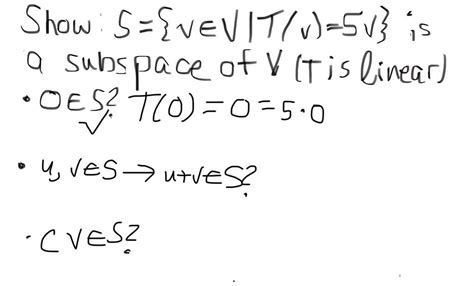 Show: S={v∈V|T(v)=5v} is
a subspace of V (T is linear)
• 0∈S? T(0)=0=5·0
✓
• u, v∈S→u+v∈S?
• c v∈S?